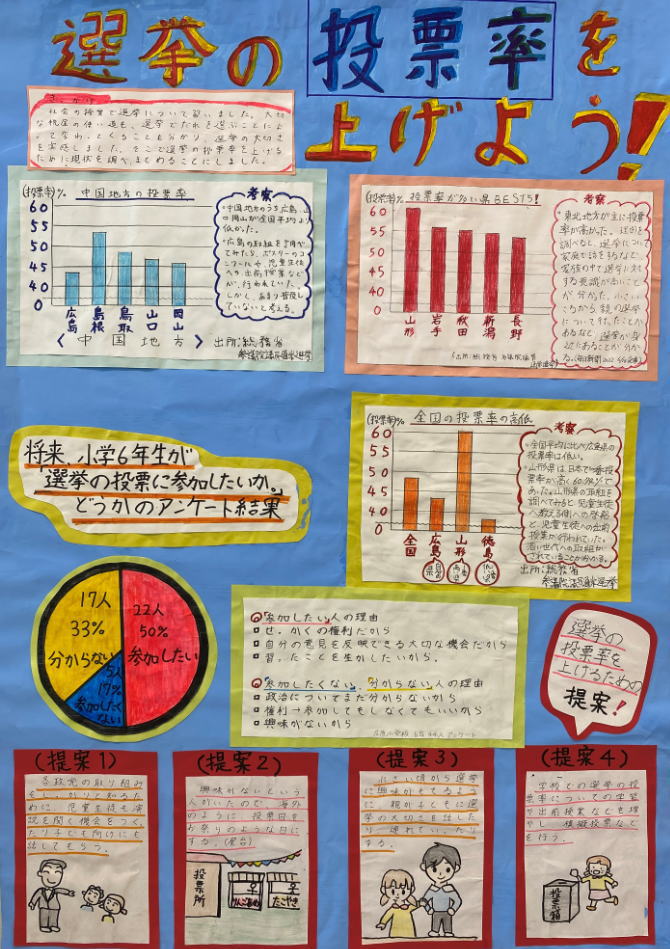 選挙の投票率を
上げよう!
きっかけ
社会の授業で選挙について習いました。大切
な税金の使い道も、選挙でだれを選ぶことによ
選挙の大切さ
を実感しました。そこで選挙の投票率を上げる
ために現状を調べ、まとめることにしました。
(投票率)% 中国地方の投票率
60
55
50
45
40
0
広島
島根
鳥取
山口
岡山
〈中国地方〉
出所:総務省
参議院議員通常選挙
考察
・中国地方のうち広島、山口
岡山が全国平均より
低かった。
・広島の取組を調べて
みたら、ポスターのコ
ンクールや、児童生徒
への出前授業など
が、行われていた。
しかし、あまり普及し
ていないと考える。
(投票率)% 投票率が多い県BEST5!
60
55
50
45
40
0
山形
岩手
秋田
新潟
長野
考察
・東北地方が主に投票
率が高かった。理由を
調べると、選挙について
家庭で話をするなど、
家族の中で選挙に対
する意識が高いこと
が分かった。小さい
ころから、親の選挙
について行ったことが
あるなど、選挙が身
近にあることが分か
る。
(投票率)% 全国の投票率の高低
60
55
50
45
40
0
全国
広島
山形
徳島
考察
・全国平均に比べ広島県の
投票率は低い。
・山形県は日本で一番投
票率が高く
山形県の取組を
調べてみると、児童生徒
へ教える側への啓発
と、児童生徒への出前
授業が行われていた。
若い世代への取組が
されていることが分かる。
出所:総務省
参議院議員通常選挙
将来、小学6年生が
「選挙の投票に参加したいか。」
どうかのアンケート結果
17人
33%
分からない
22人
50%
参加したい
17%
参加したく
ない
◎参加したい人の理由
せっかくの権利だから
自分の意見を反映できる大切な機会だから
習ったことを生かしたいから。
◎参加したくない、分からない人の理由
政治についてまだ分からないから
権利→参加してもしなくてもいいから
興味がないから
選挙の
投票率を
上げるための
提案!
(提案1)
各政党の取り組み
をしっかりと知るた
めに、児童生徒も演
説を聞く機会をつくっ
たり子ども向けにも
話してもらう。
(提案2)
興味がないという
人がいたので、海外
のように、投票日を
お祭りのような日に
する。(屋台)
投票所
りんごあめ
たこやき
(提案3)
小さい頃から選挙
に興味がもてるよう
に、親が子どもに選
挙の大切さを話した
り、連れていったり
する。
(提案4)
学校での選挙の投
票率についての学習
や出前授業などを増
やし、模擬投票など
を行う。
投票箱